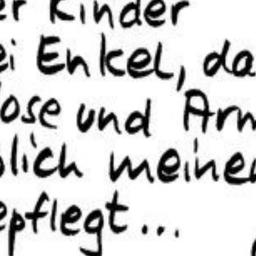 er Kinder
ei Enkel, da
lose und Arm
lich meinen
epflegt...